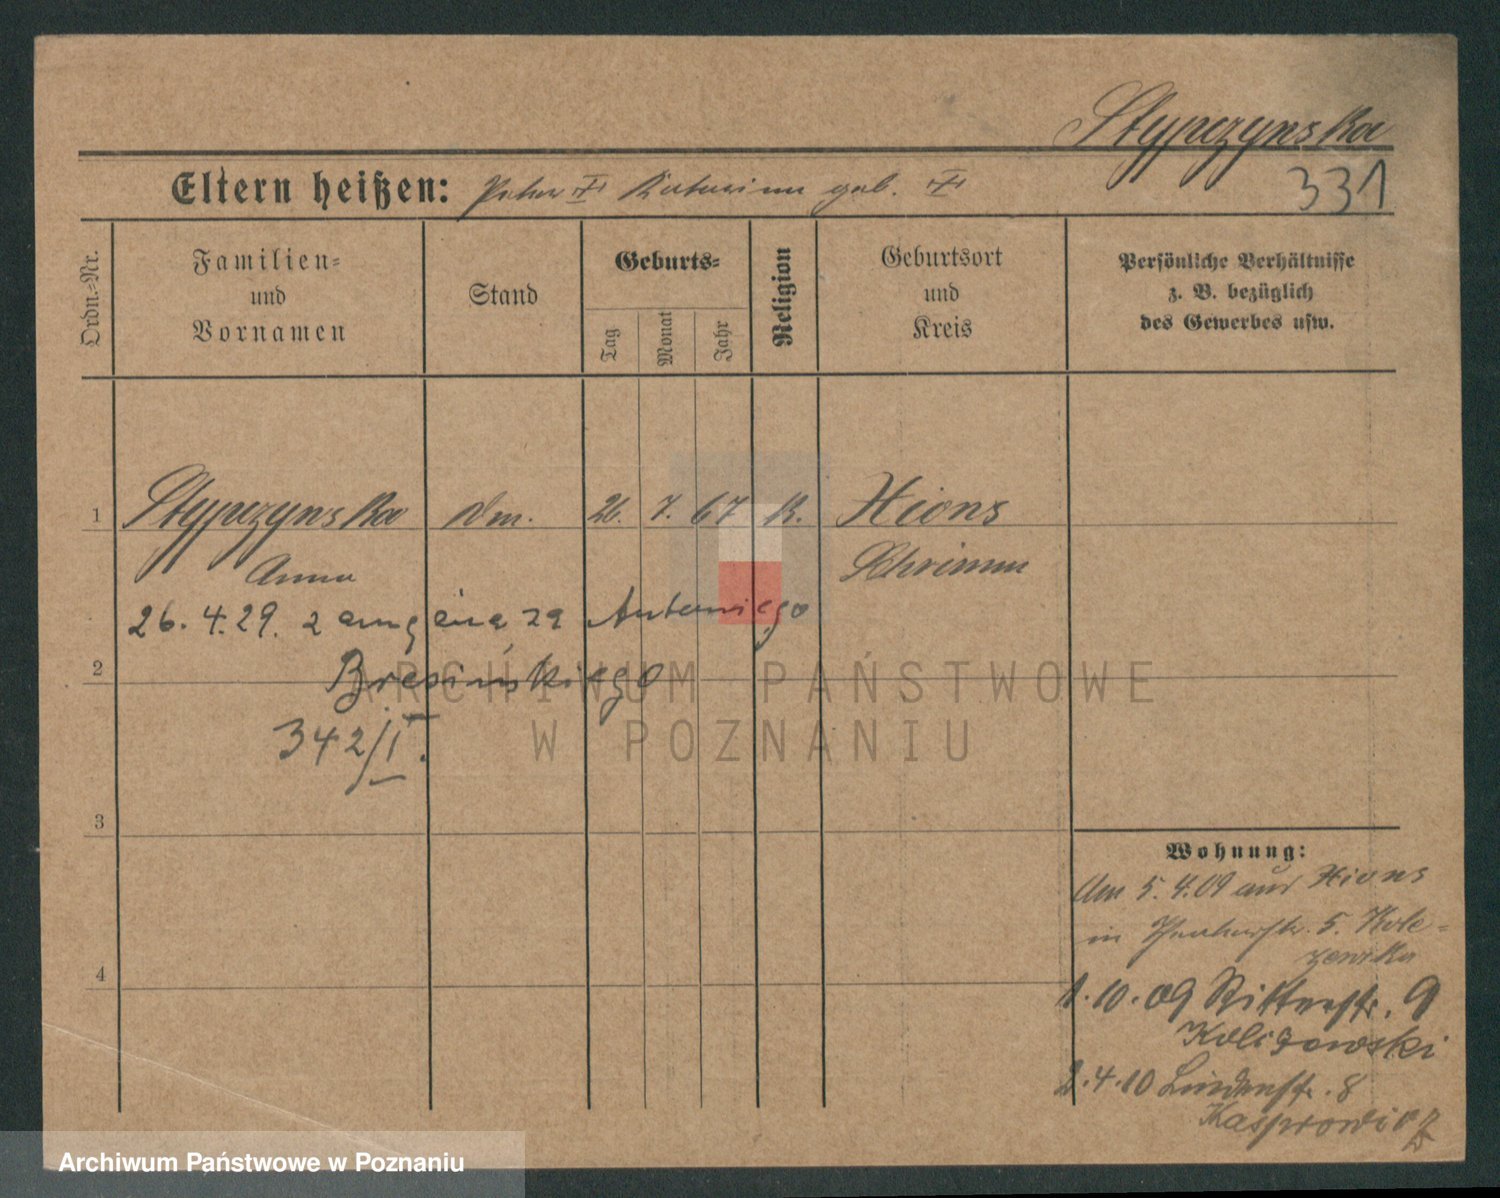 Stypczynska
331
Eltern heißen: Peter Katarina geb.
Ordn.-Nr.
Familien-
und
Vornamen
Stand
Geburts-
Tag
Monat
Jahr
Religion
Geburtsort
und
Kreis
Persönliche Verhältnisse
z. B. bezüglich
des Gewerbes usw.
1
Stypczynska dm. 26. 7. 67 K. Xions
Anna Schrimm
26.4.29. zamężna za Antoniego
2
Bresińskiego
342/I.
3
4
Wohnung:
Am 5.4.09 aus Xions
in 5.
1.10.09 Ritterstr. 9
2.4.10 Lindenstr. 8
Kasprowicz
ARCHIWUM PAŃSTWOWE
W POZNANIU
Archiwum Państwowe w Poznaniu